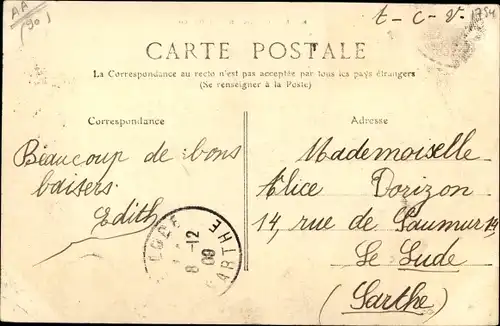 AA
901
t-c-v-
754
CARTE POSTALE
La Correspondance au recto n'est pas acceptée par tous les pays étrangers
(Se renseigner à la Poste)
Correspondance
Adresse
Beaucoup de bons
baisers.
Edith
8-12
09
SARTHE
Mademoiselle
Alice Dorizon
14, rue de Saumur 14
Le Lude
(Sarthe)